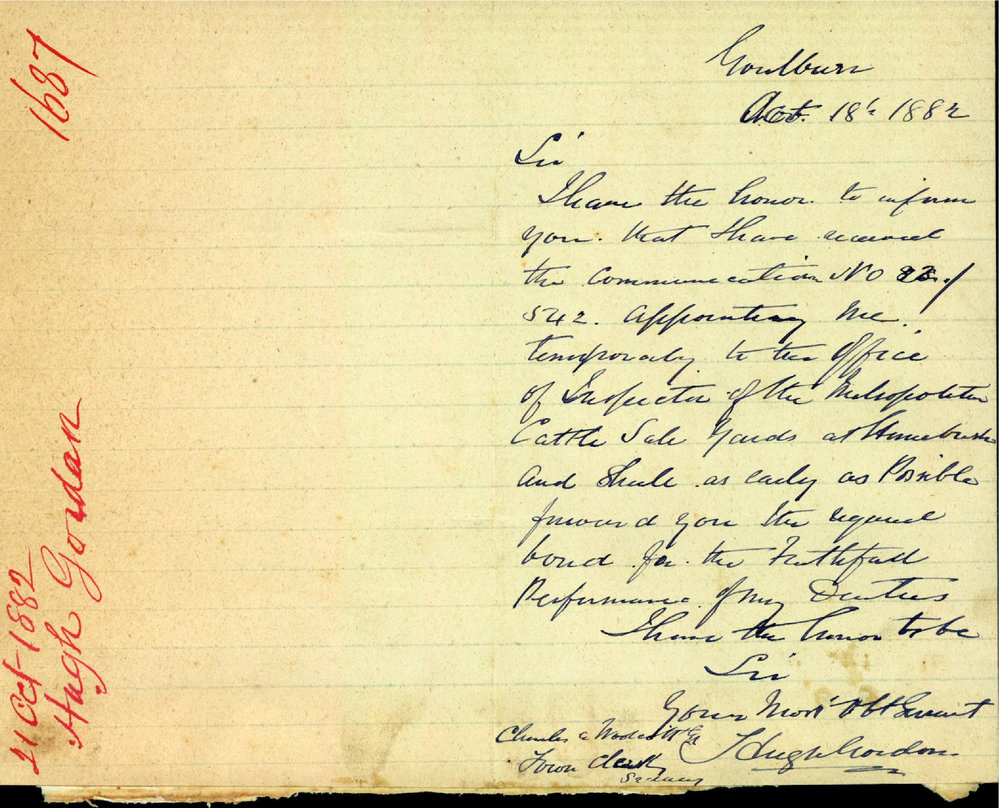 1687
21 Oct 1882
Hugh Gordan
Goulburn
Oct. 18th 1882
Sir
I have the honor to inform
you that I have received
the Communication No
542. appointing me
temporarly to the Office
of Inspector of the Metropolitan
Cattle Sale Yards at Homebush
and Shall as early as Possible
forward you the required
bond for the Faithfull
Performance of my Duties
I have the honor to be
Sir
Your Most Obt Servant
Hugh Gordon
Charles
Town Clerk
Sydney